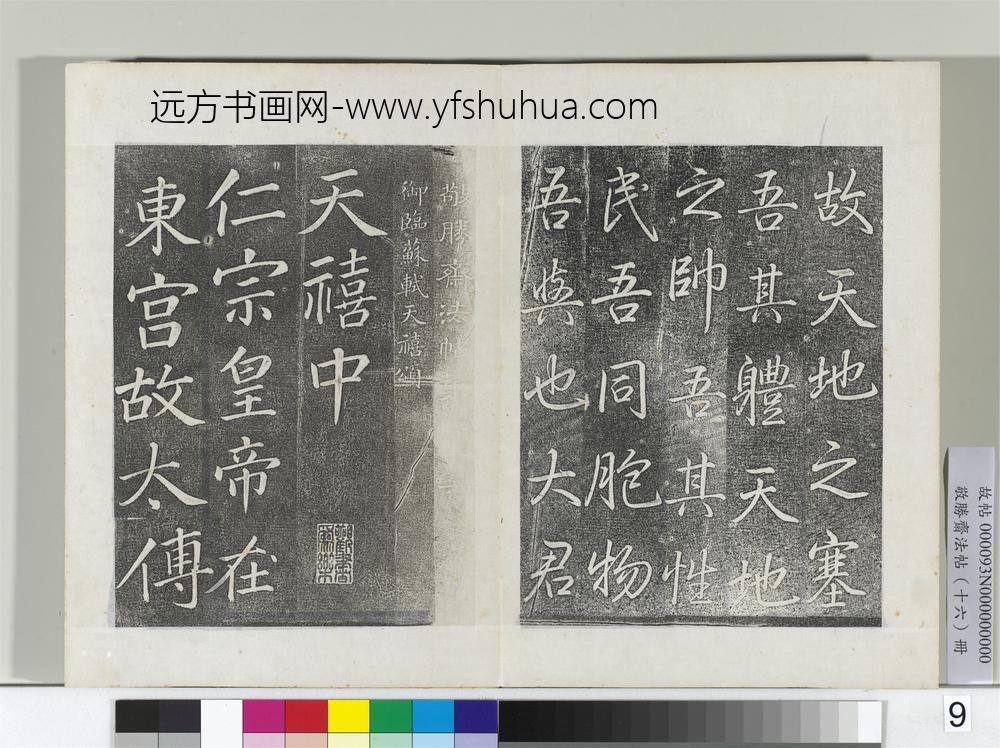 远方书画网-www.yfshuhua.com
故天地之塞
吾其體天地
之帥吾其性
民吾同胞物
吾與也大君
敬勝齋法帖
御臨蘇軾天禧頌
天禧中
仁宗皇帝在
東宮故太傅
故帖 000093N000000000000
敬勝齋法帖（十六）冊
9